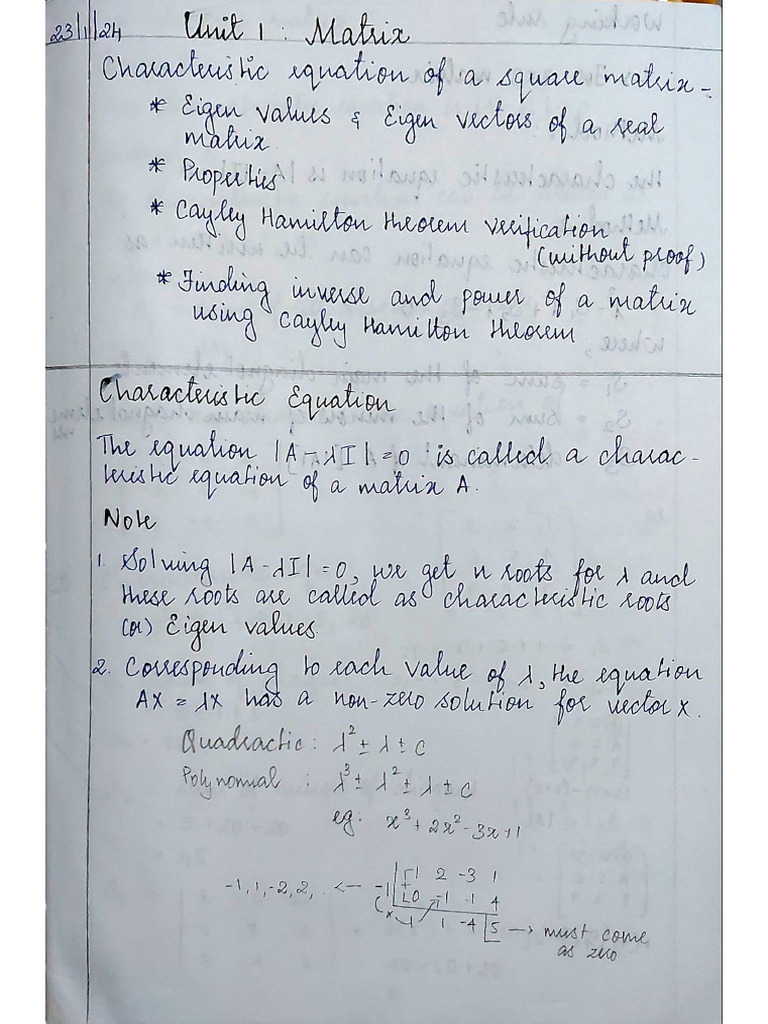 23/1/24 Unit 1 : Matrix
Characteristic equation of a square matrix -
* Eigen values & Eigen vectors of a real
matrix.
* Properties
* Cayley Hamilton theorem verification
(without proof)
* Finding inverse and power of a matrix
using Cayley Hamilton Theorem
Characteristic Equation
The equation |A - λI| = 0 is called a charac-
teristic equation of a matrix A.
Note
1. Solving |A - λI| = 0, we get n roots for λ and
these roots are called as characteristic roots
(or) Eigen values.
2. Corresponding to each value of λ, the equation
AX = λX has a non-zero solution for vector X.
Quadractic : λ² ± λ ± c
Polynomial : λ³ ± λ² ± λ ± c
eg: x³ + 2x² - 3x + 1
1 2 -3 1
-1, 1, -2, 2, . . <-- -1 0 -1 -1 4
1 1 -4 5 → must come
as zero